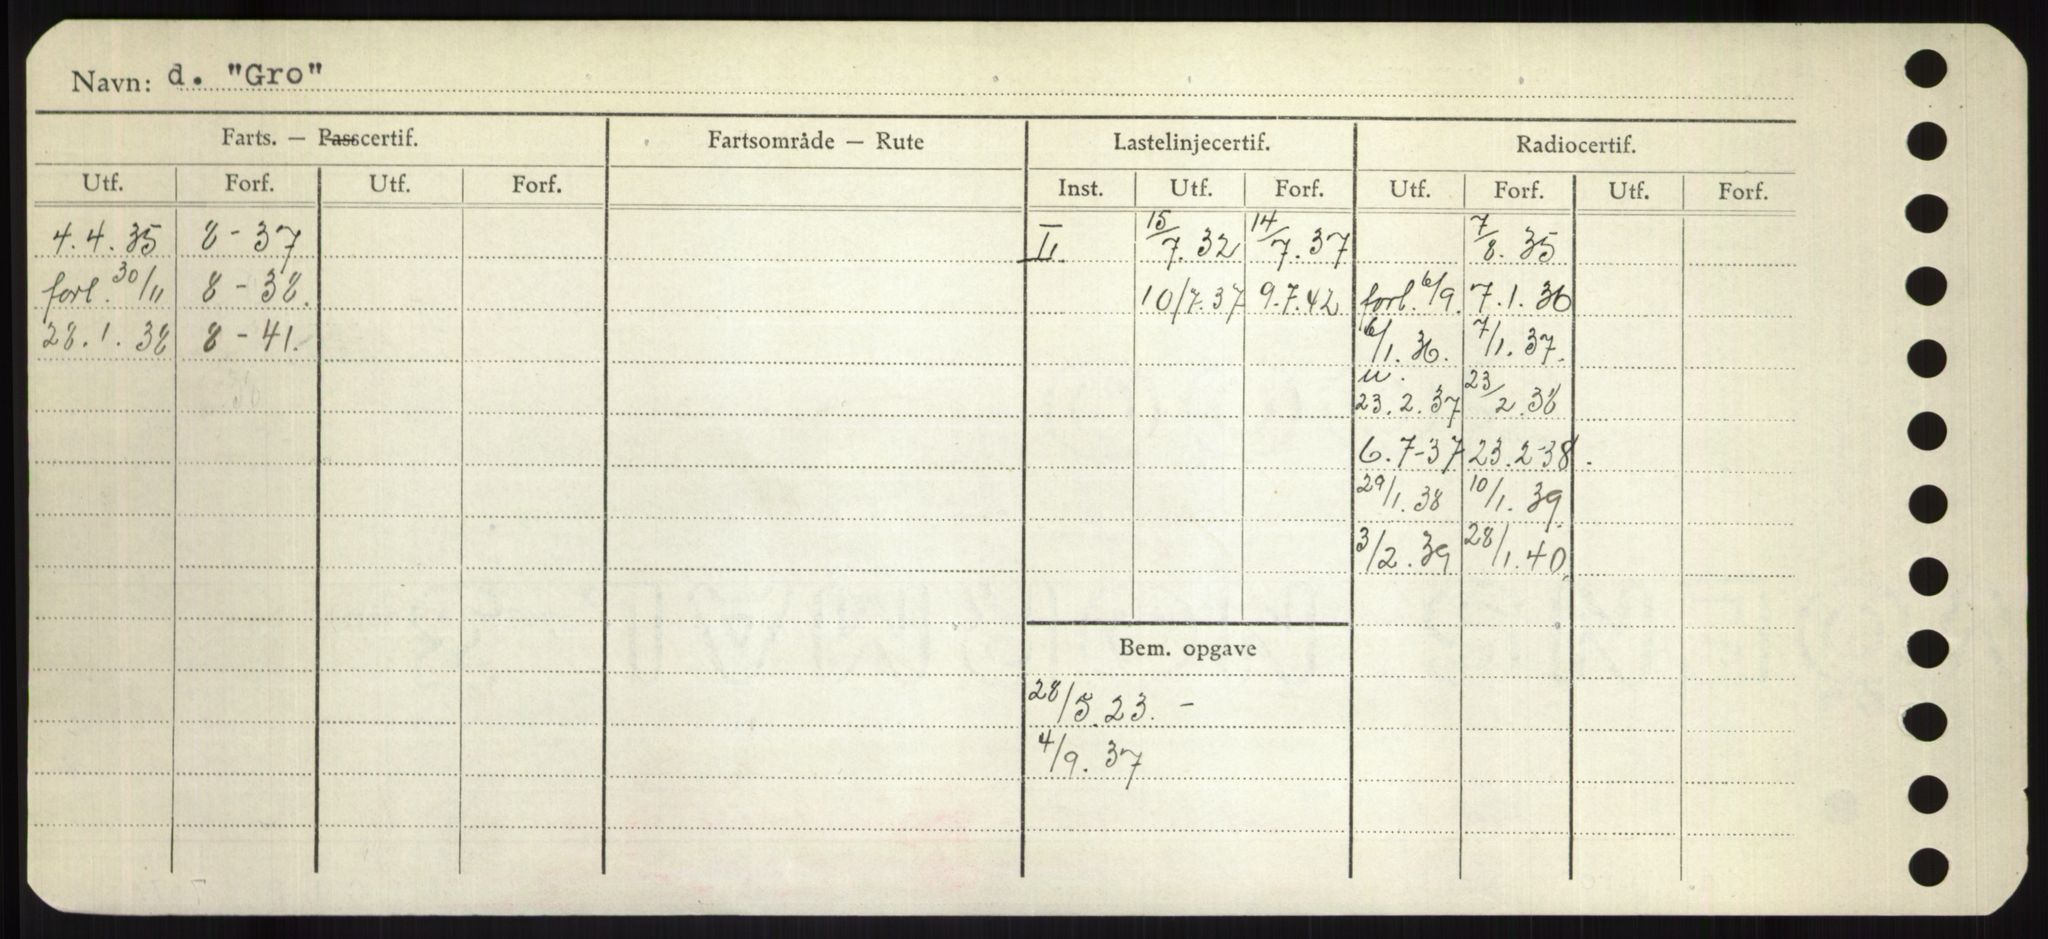 Navn: d. "Gro"
Farts. — Passcertif. Fartsområde — Rute Lastelinjecertif. Radiocertif.
Utf. Forf. Utf. Forf. Inst. Utf. Forf. Utf. Forf. Utf. Forf.
4.4.35 8-37 II. 15/7.32 14/7.37 7/8.35
forl. 30/11 8-38. 10/7.37 9.7.42 forl. 6/9. 7.1.36
28.1.38 8-41. 6/1.36. 7/1.37.
u. 23.2.37 23/2.38
6.7-37 23.2-38.
29/1.38 10/1.39
3/2.39 28/1.40
Bem. opgave
28/5.23. -
4/9.37